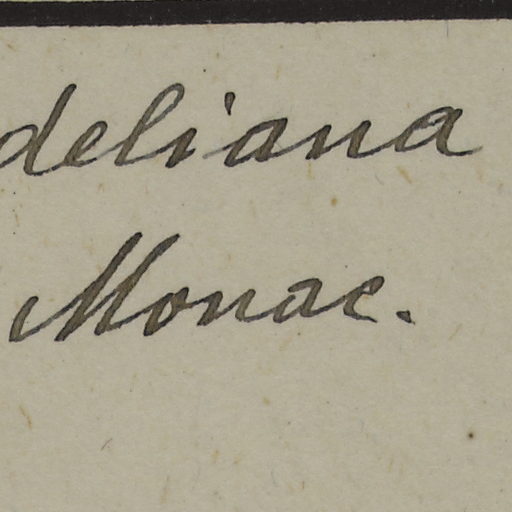 deliana
Monac.